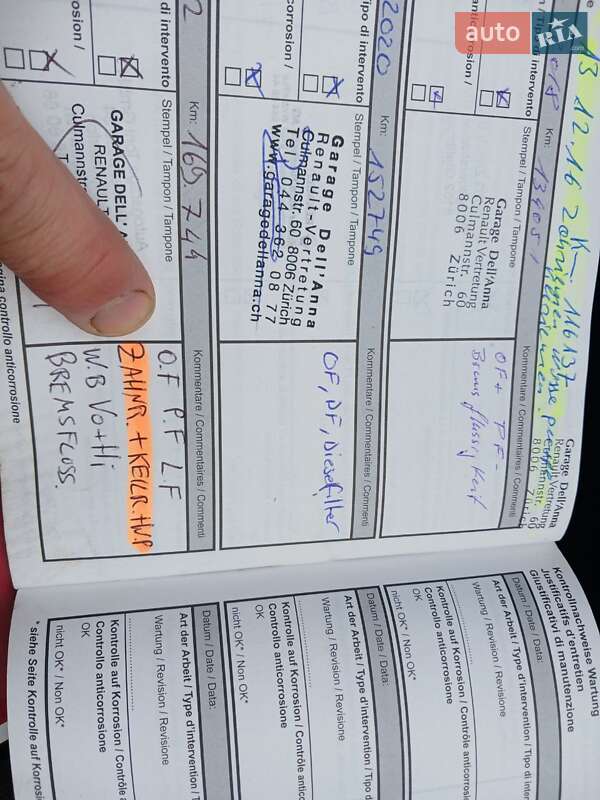 auto RIA
.com
13 12.16 K- 116137
Garage Dell'Anna
Renault Vertretung
Culmannstr. 60
8006 Zürich
Tipo di intervento
Km:
Stempel / Tampon / Tampone
Garage Dell'Anna
Renault Vertretung
Culmannstr. 60
8006 Zürich
Kommentare / Commentaires / Commenti
OF + PF -
2020
Tipo di intervento
corrosion /
Km: 152749
Stempel / Tampon / Tampone
Garage Dell'Anna
Renault-Vertretung
Culmannstr. 60 8006 Zürich
Tel. 044 362 08 77
www.garagedellanna.ch
Kommentare / Commentaires / Commenti
OF, PF, Dieselfilter
2
Tipo di intervento
corrosion /
Km: 169.744
Stempel / Tampon / Tampone
GARAGE DELL'A
RENAULT
Culmannst
Kommentare / Commentaires / Commenti
O.F P.F L.F
ZAHNR. + KEILR + W.P
W.B Vo + Hi
BREMSFLÜSS.
pagina controllo anticorrosione
Kontrollnachweise Wartung
Justificatifs d'entretien
Giustificativi di manutenzione
Datum / Date / Data:
Art der Arbeit / Type d'intervention / Tipo di inter
Wartung / Revision / Revisione
Kontrolle auf Korrosion / Contrôle a
Controllo anticorrosione
OK
nicht OK* / Non OK*
Datum / Date / Data:
Art der Arbeit / Type d'intervention / Tipo d
Wartung / Revision / Revisione
Kontrolle auf Korrosion / Contrôle anti
Controllo anticorrosione
OK
nicht OK* / Non OK*
Datum / Date / Data:
Art der Arbeit / Type d'inter
Wartung / Revision / Revisione
Kontrolle auf Korrosion / Contrôle
Controllo anticorrosione
OK
nicht OK* / Non OK*
*siehe Seite Kontrolle auf Korrosi